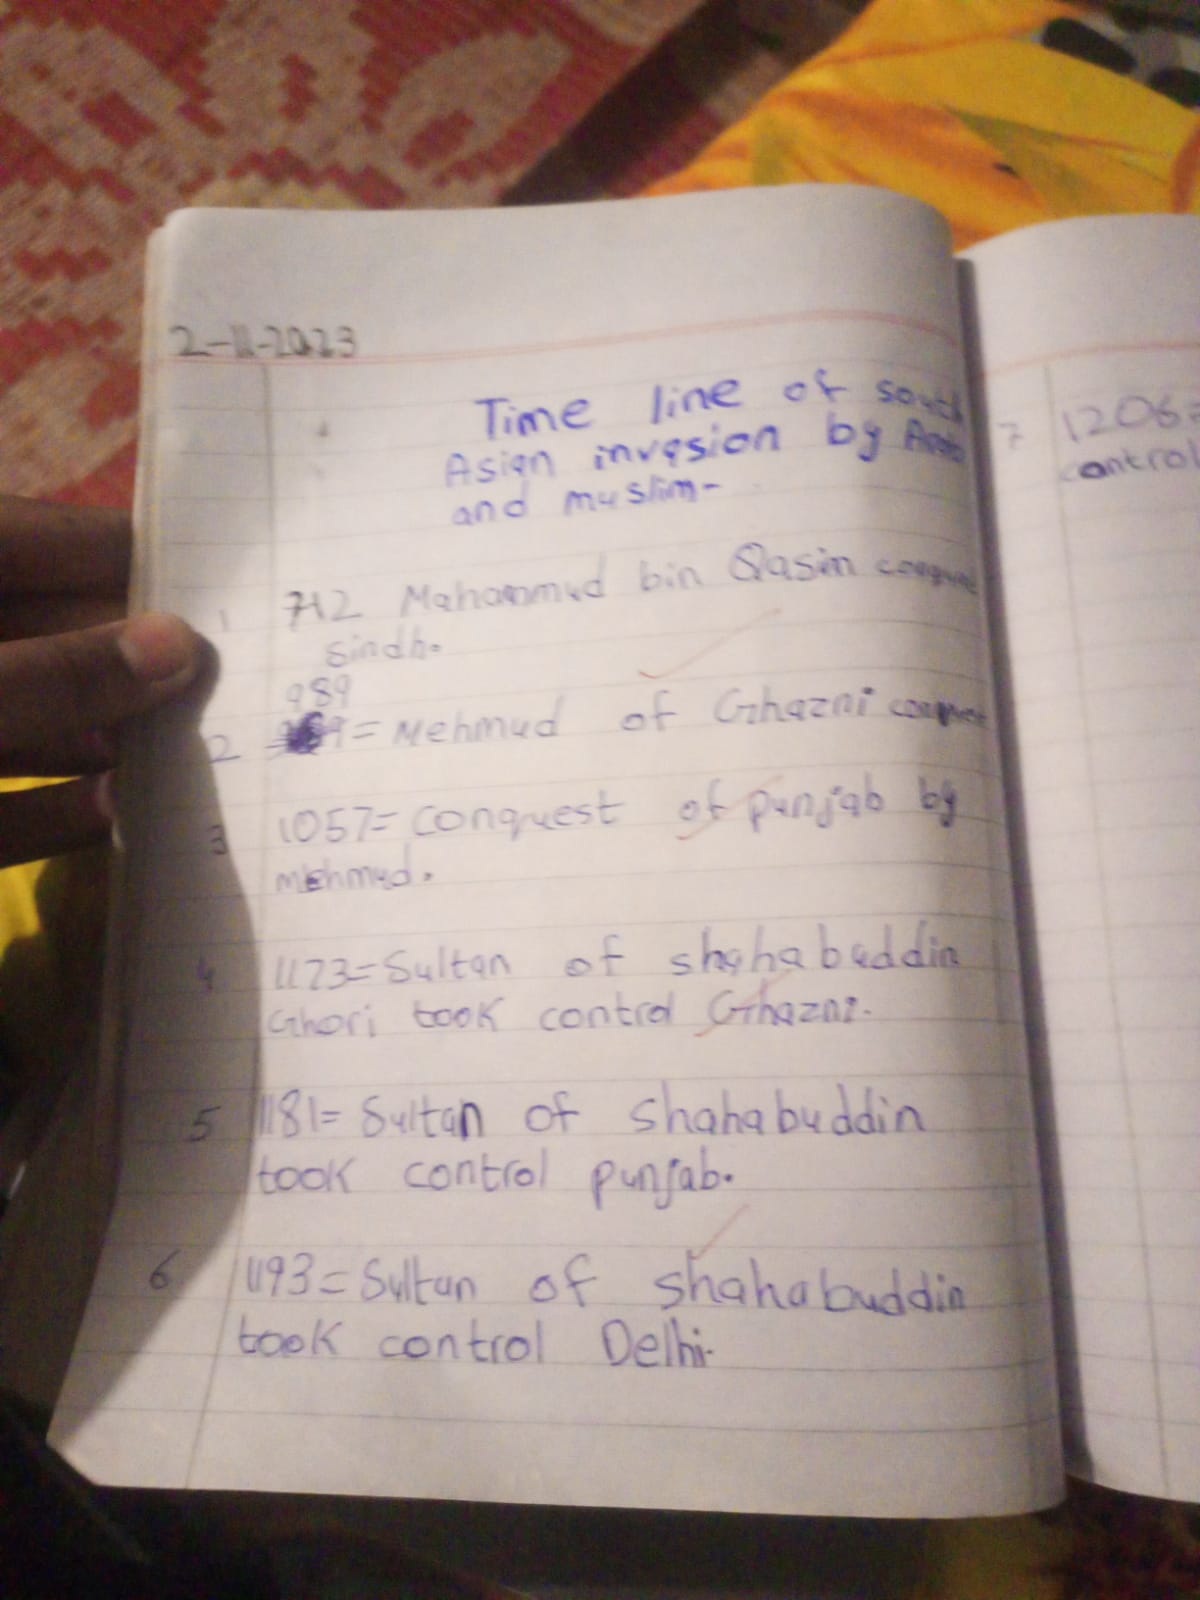 2-11-2023
Time line of south
Asian invasion by
and muslim-
1 712 Mahammud bin Qasim
Sindh.
989
2 = Mehmud of Ghazni
3 1057= conquest of punjab by
mehmud.
4 1173= Sultan of shahabuddin
Ghori took control Ghazni.
5 1181= Sultan of shahabuddin
took control punjab.
6 1193= Sultan of shahabuddin
took control Delhi.
7 1206=
control